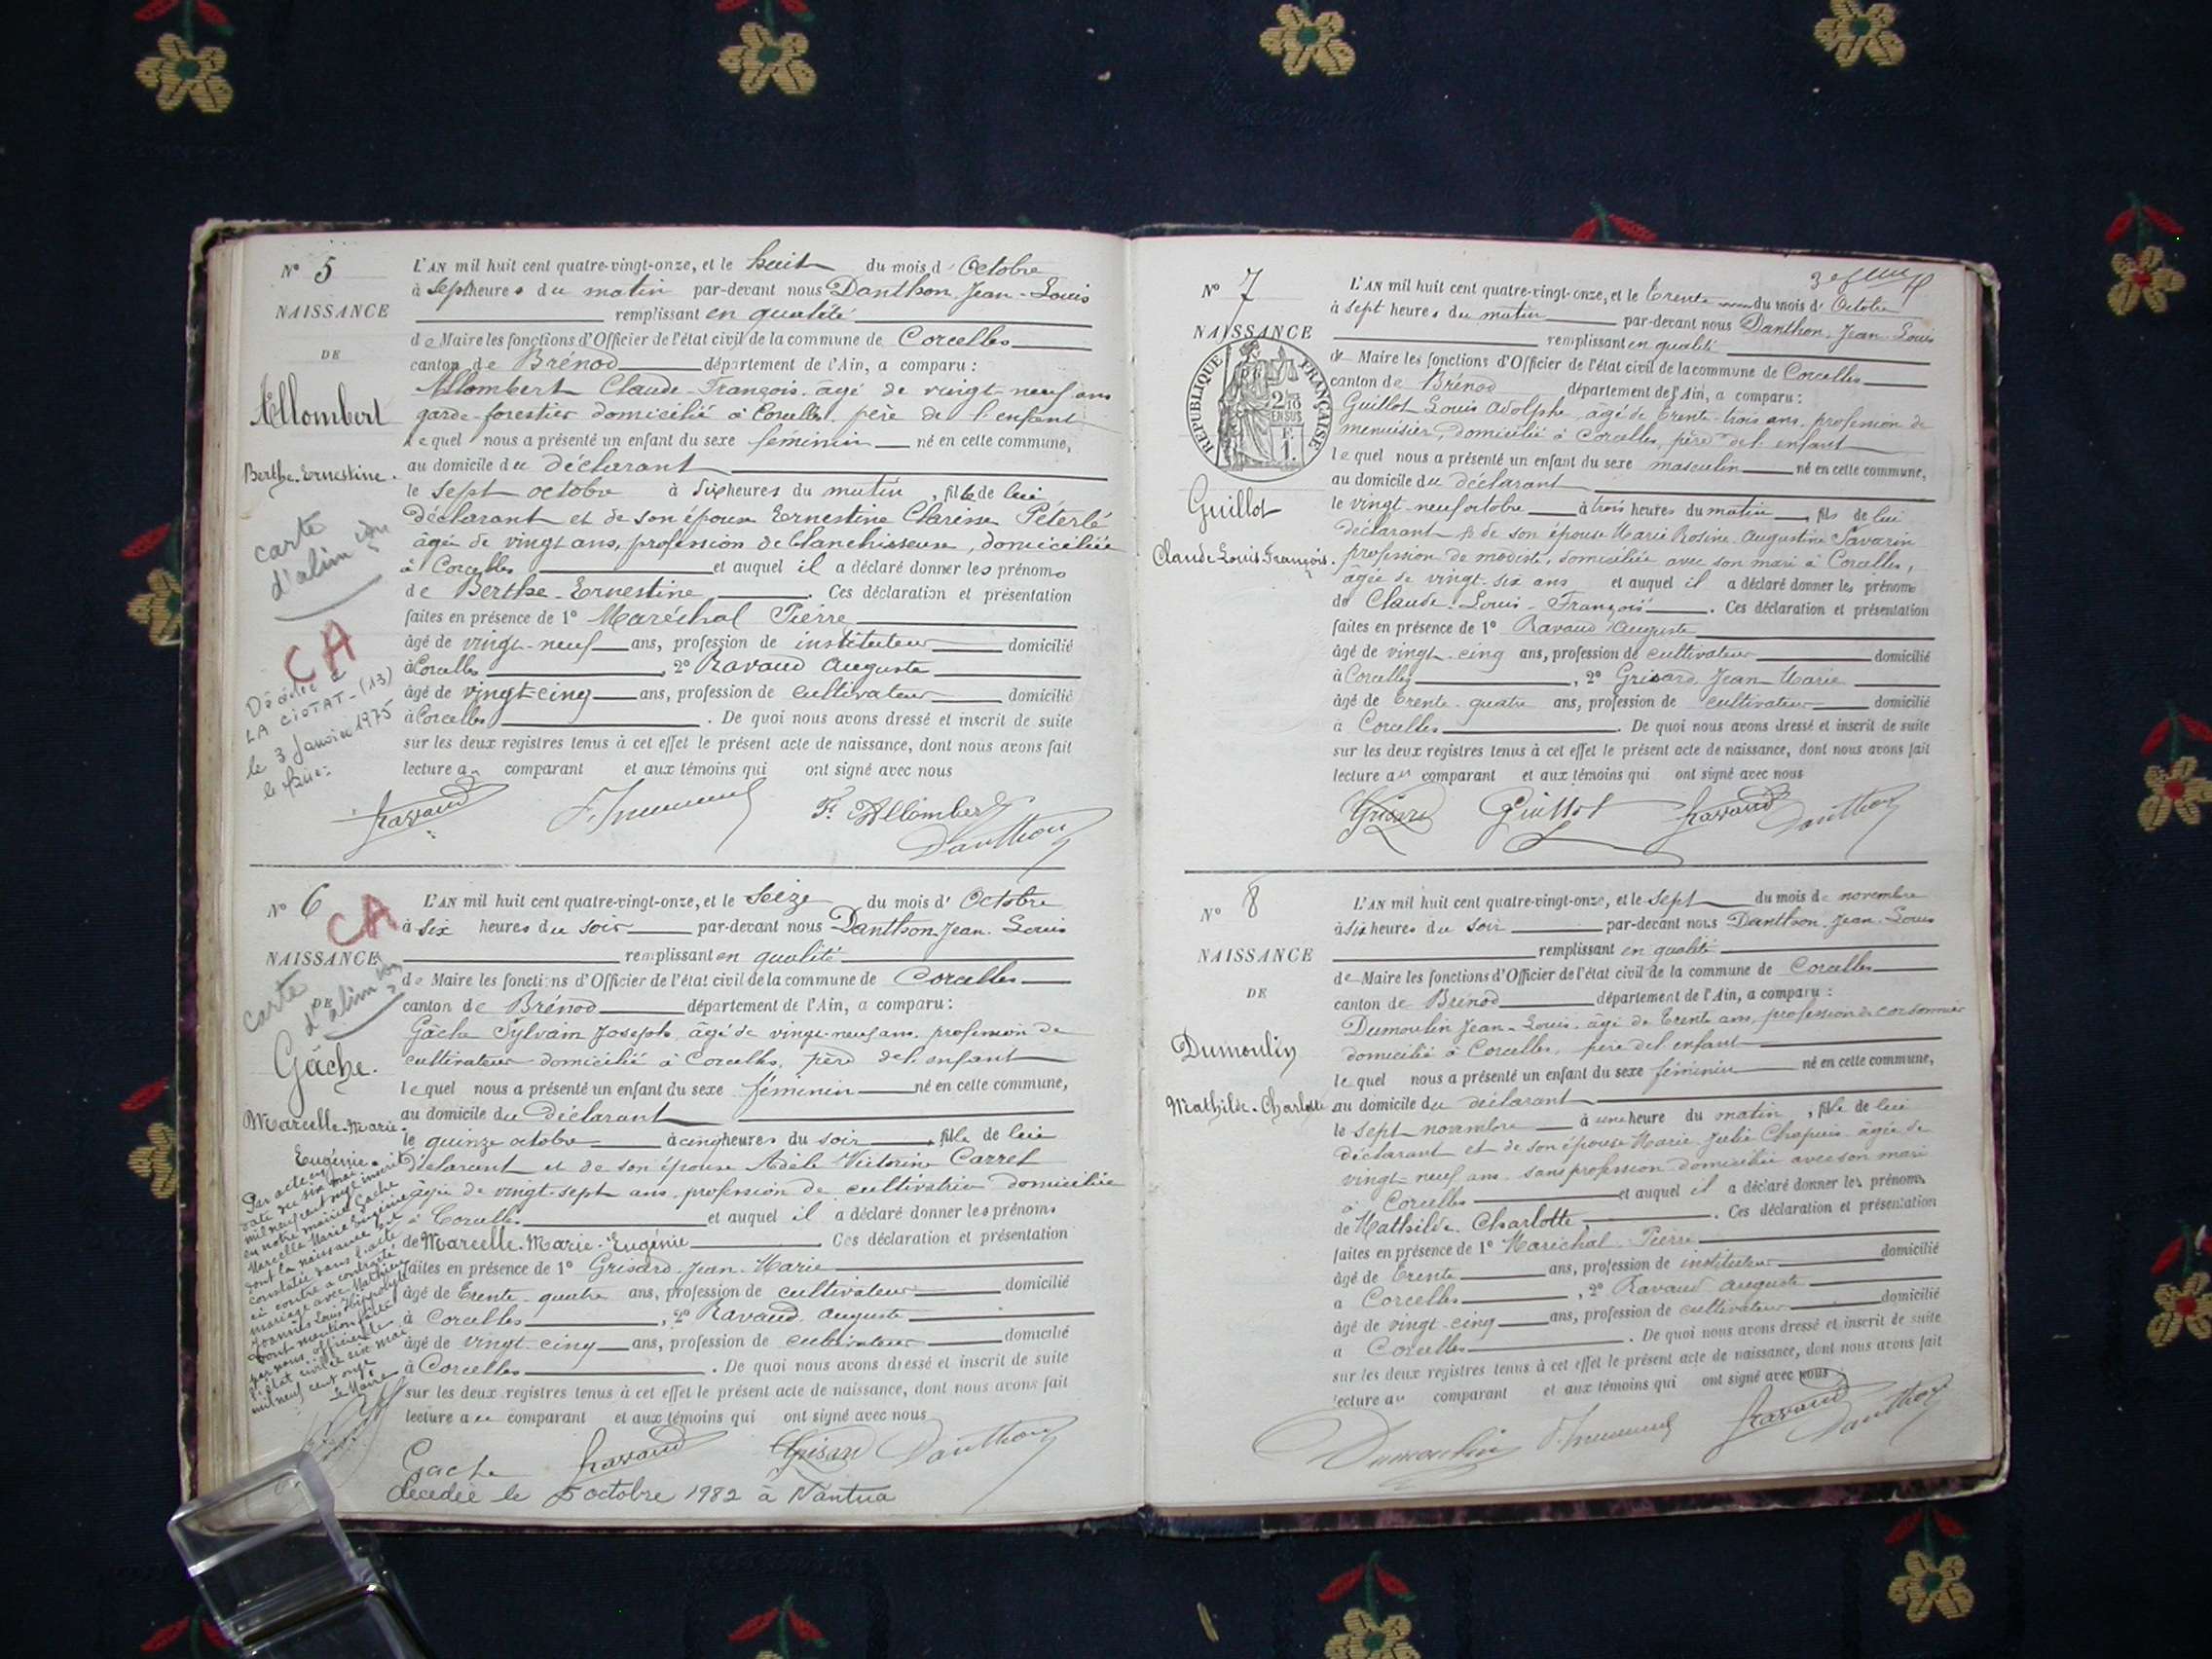 N° 5
NAISSANCE
DE
Allombert
Berthe-Ernestine.
carte
d'alim ion
CA
Décédée à
LA CIOTAT - (13)
le 3 Janvier 1975
L'AN mil huit cent quatre-vingt-onze, et le huit du mois d'Octobre
à sept heures du matin par-devant nous Danthon Jean-Louis
remplissant en qualité
de Maire les fonctions d'Officier de l'état civil de la commune de Corcelles
canton de Brénod département de l'Ain, a comparu :
Allombert Claude-François. âgé de vingt-neuf ans
garde-forestier domicilié à Corcelles. père de l'enfant
lequel nous a présenté un enfant du sexe féminin né en cette commune,
au domicile du déclarant
le sept octobre à six heures du matin, fille de lui
déclarant et de son épouse Ernestine Clarisse Péterlé
âgée de vingt ans, profession de blanchisseuse, domiciliée
à Corcelles et auquel il a déclaré donner les prénoms
de Berthe-Ernestine. Ces déclaration et présentation
faites en présence de 1° Maréchal Pierre
âgé de vingt-neuf ans, profession de instituteur domicilié
à Corcelles, 2° Ravaud Auguste
âgé de vingt-cinq ans, profession de cultivateur domicilié
à Corcelles. De quoi nous avons dressé et inscrit de suite
sur les deux registres tenus à cet effet le présent acte de naissance, dont nous avons fait
lecture au comparant et aux témoins qui ont signé avec nous
Ravaud F. Allombert
Danthon
N° 6
CA
NAISSANCE
DE
carte
d'alim ion
Gâche.
Marcelle-Marie-
Eugénie.
Par acte en
date du six mai
mil neuf cent onze inscrit
en notre mairie Gache
Marcelle Marie Eugénie
dont la naissance est
constatée dans l'acte
ci contre a contracté
mariage avec Mathieu
Joannès Louis Hippolyte
Dont mention faite
par nous officier de
l'état civil ce six mai
mil neuf cent onze
Le Maire
L'AN mil huit cent quatre-vingt-onze, et le seize du mois d'Octobre
à six heures du soir par-devant nous Danthon Jean-Louis
remplissant en qualité
de Maire les fonctions d'Officier de l'état civil de la commune de Corcelles
canton de Brénod département de l'Ain, a comparu :
Gâche Sylvain Joseph, âgé de vingt-neuf ans, profession de
cultivateur domicilié à Corcelles, père de l'enfant
lequel nous a présenté un enfant du sexe féminin né en cette commune,
au domicile du déclarant
le quinze octobre à cinq heures du soir, fille de lui
déclarant et de son épouse Adèle Victorine Carrel
âgée de vingt-sept ans profession de cultivatrice domiciliée
à Corcelles et auquel il a déclaré donner les prénoms
de Marcelle-Marie-Eugénie. Ces déclaration et présentation
faites en présence de 1° Grisard Jean-Marie
âgé de trente-quatre ans, profession de cultivateur domicilié
à Corcelles, 2° Ravaud Auguste
âgé de vingt-cinq ans, profession de cultivateur domicilié
à Corcelles. De quoi nous avons dressé et inscrit de suite
sur les deux registres tenus à cet effet le présent acte de naissance, dont nous avons fait
lecture au comparant et aux témoins qui ont signé avec nous
Gache Ravaud Grisard Danthon
décédée le 5 octobre 1982 à Nantua
N° 7
NAISSANCE
RÉPUBLIQUE FRANÇAISE
2/10 EN SUS
F. 1.
Guillot
Claude-Louis-François.
L'AN mil huit cent quatre-vingt-onze, et le trente du mois d'Octobre
à sept heures du matin par-devant nous Danthon Jean-Louis
remplissant en qualité
de Maire les fonctions d'Officier de l'état civil de la commune de Corcelles
canton de Brénod département de l'Ain, a comparu :
Guillot Louis Adolphe âgé de trente-trois ans, profession de
menuisier, domicilié à Corcelles, père de l'enfant
lequel nous a présenté un enfant du sexe masculin né en cette commune,
au domicile du déclarant
le vingt-neuf octobre à trois heures du matin, fils de lui
déclarant & de son épouse Marie Rosine Augustine Savarin
profession de modiste, domiciliée avec son mari à Corcelles,
âgée de vingt-six ans et auquel il a déclaré donner les prénoms
de Claude-Louis-François. Ces déclaration et présentation
faites en présence de 1° Ravaud Auguste
âgé de vingt-cinq ans, profession de cultivateur domicilié
à Corcelles, 2° Grisard Jean-Marie
âgé de trente-quatre ans, profession de cultivateur domicilié
à Corcelles. De quoi nous avons dressé et inscrit de suite
sur les deux registres tenus à cet effet le présent acte de naissance, dont nous avons fait
lecture au comparant et aux témoins qui ont signé avec nous
Grisard Guillot Ravaud Danthon
N° 8
NAISSANCE
DE
Dumoulin
Mathilde-Charlotte
L'AN mil huit cent quatre-vingt-onze, et le sept du mois de novembre
à six heures du soir par-devant nous Danthon Jean-Louis
remplissant en qualité
de Maire les fonctions d'Officier de l'état civil de la commune de Corcelles
canton de Brénod département de l'Ain, a comparu :
Dumoulin Jean-Louis. âgé de trente ans, profession de cordonnier
domicilié à Corcelles, père de l'enfant
lequel nous a présenté un enfant du sexe féminin né en cette commune,
au domicile du déclarant
le sept novembre à une heure du matin, fille de lui
déclarant et de son épouse Marie Julie Chapuis âgée de
vingt-neuf ans sans profession domiciliée avec son mari
à Corcelles et auquel il a déclaré donner les prénoms
de Mathilde Charlotte. Ces déclaration et présentation
faites en présence de 1° Maréchal Pierre
âgé de trente ans, profession de instituteur domicilié
à Corcelles, 2° Ravaud Auguste
âgé de vingt-cinq ans, profession de cultivateur domicilié
à Corcelles. De quoi nous avons dressé et inscrit de suite
sur les deux registres tenus à cet effet le présent acte de naissance, dont nous avons fait
lecture au comparant et aux témoins qui ont signé avec nous
Dumoulin Ravaud Danthon